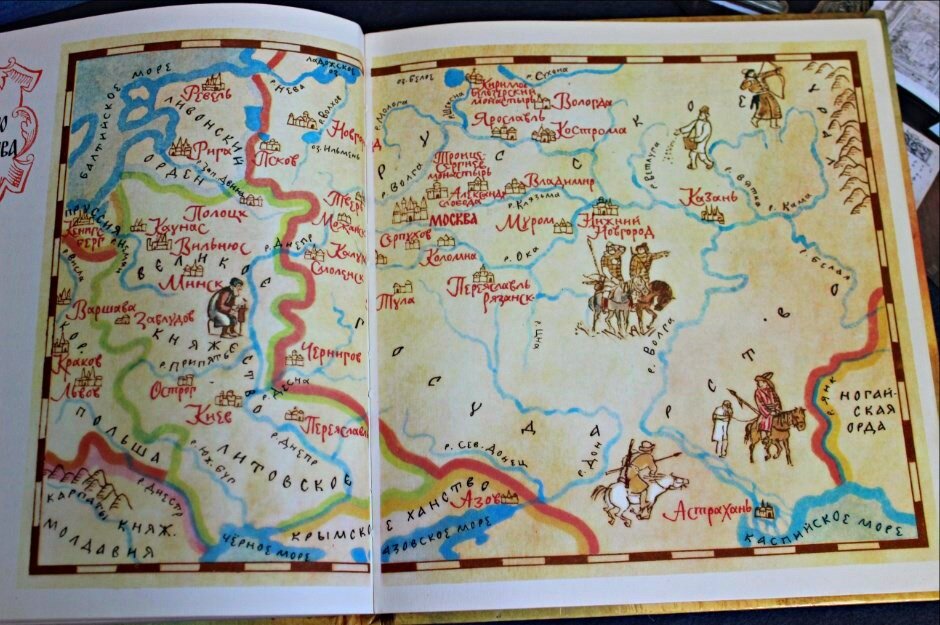 ВА
БАЛТИЙСКОЕ МОРЕ
Ревель
ЛИВОНСКИЙ
ОРДЕН
Рига
р. Зап. Двина
ЛАДОЖСКОЕ
ОЗ.
р. НЕВА
р. ВОЛХОВ
Новг
ОЗ. ИЛЬМЕНЬ
Псков
ПРУССИЯ
Полоцк
Каунас
Вильнюс
Минск
р. ДНЕПР
Смоленск
ВЕЛИКОЕ
КНЯЖЕСТВО
ЛИТОВСКОЕ
Варшава
Заблудов
КОР.
ПОЛЬША
Краков
Львов
р. ПРИПЯТЬ
Острог
Киев
Чернигов
р. ДЕСНА
Переяславль
р. ДНЕПР
р. Юж. БУГ
р. ДНЕСТР
КАРПАТЫ
КНЯЖ.
МОЛДАВИЯ
ЧЁРНОЕ МОРЕ
КРЫМСКО
Е ХАНСТВО
ОЗ. БЕЛОЕ
Кирилло-
Белозерский
монастырь
р. СУХОНА
Вологда
р. МОЛОГА
Ярославль
Кострома
р. ВОЛГА
Троице-
Сергиев
монастырь
Александр.
слобода
Владимир
р. Клязьма
МОСКВА
Муром
Нижний
Новгород
Серпухов
Коломна
р. Ока
Тула
Переяславль
Рязанск
р. Цна
р. ВОЛГА
р. ВЕТЛУГА
р. ВЯТКА
Казань
р. КАМА
р. БЕЛАЯ
РУССКОЕ
ГОСУДАРСТВО
р. ЯИК
НОГАЙ-
СКАЯ
ОРДА
р. СЕВ. ДОНЕЦ
р. ДОН
Азов
АЗОВСКОЕ МОРЕ
Астрахань
КАСПИЙСКОЕ МОРЕ